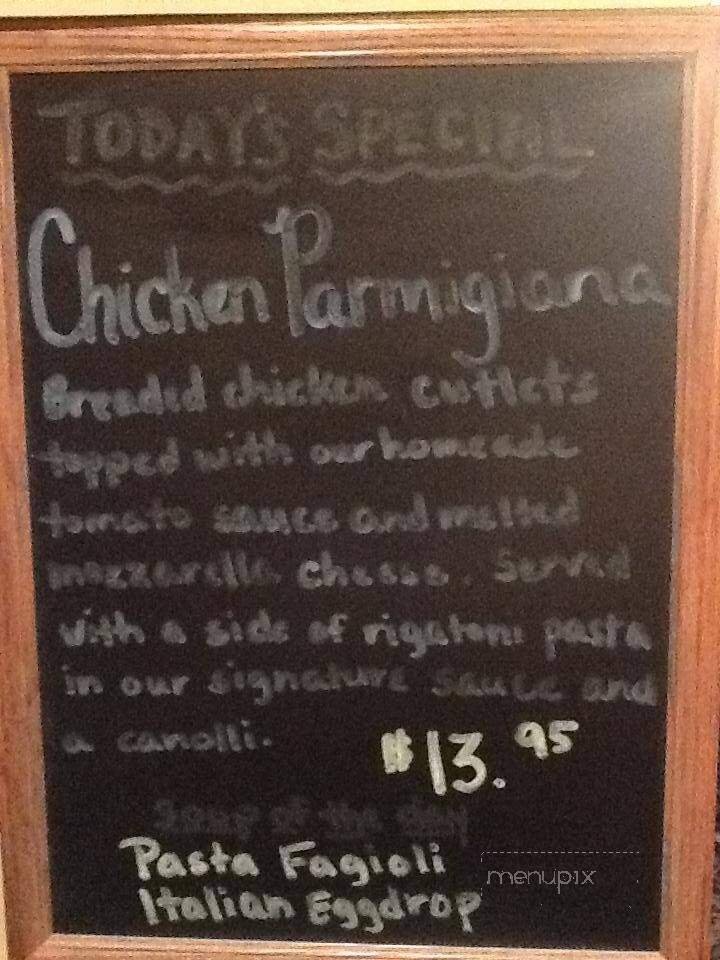 TODAY'S SPECIAL
Chicken Parmigiana
Breaded chicken cutlets
topped with our homeade
tomato sauce and melted
mozzarella cheese. Served
with a side of rigatoni pasta
in our signature sauce and
a canolli.
$13.95
Soup of the day
Pasta Fagioli
menupix
Italian Eggdrop